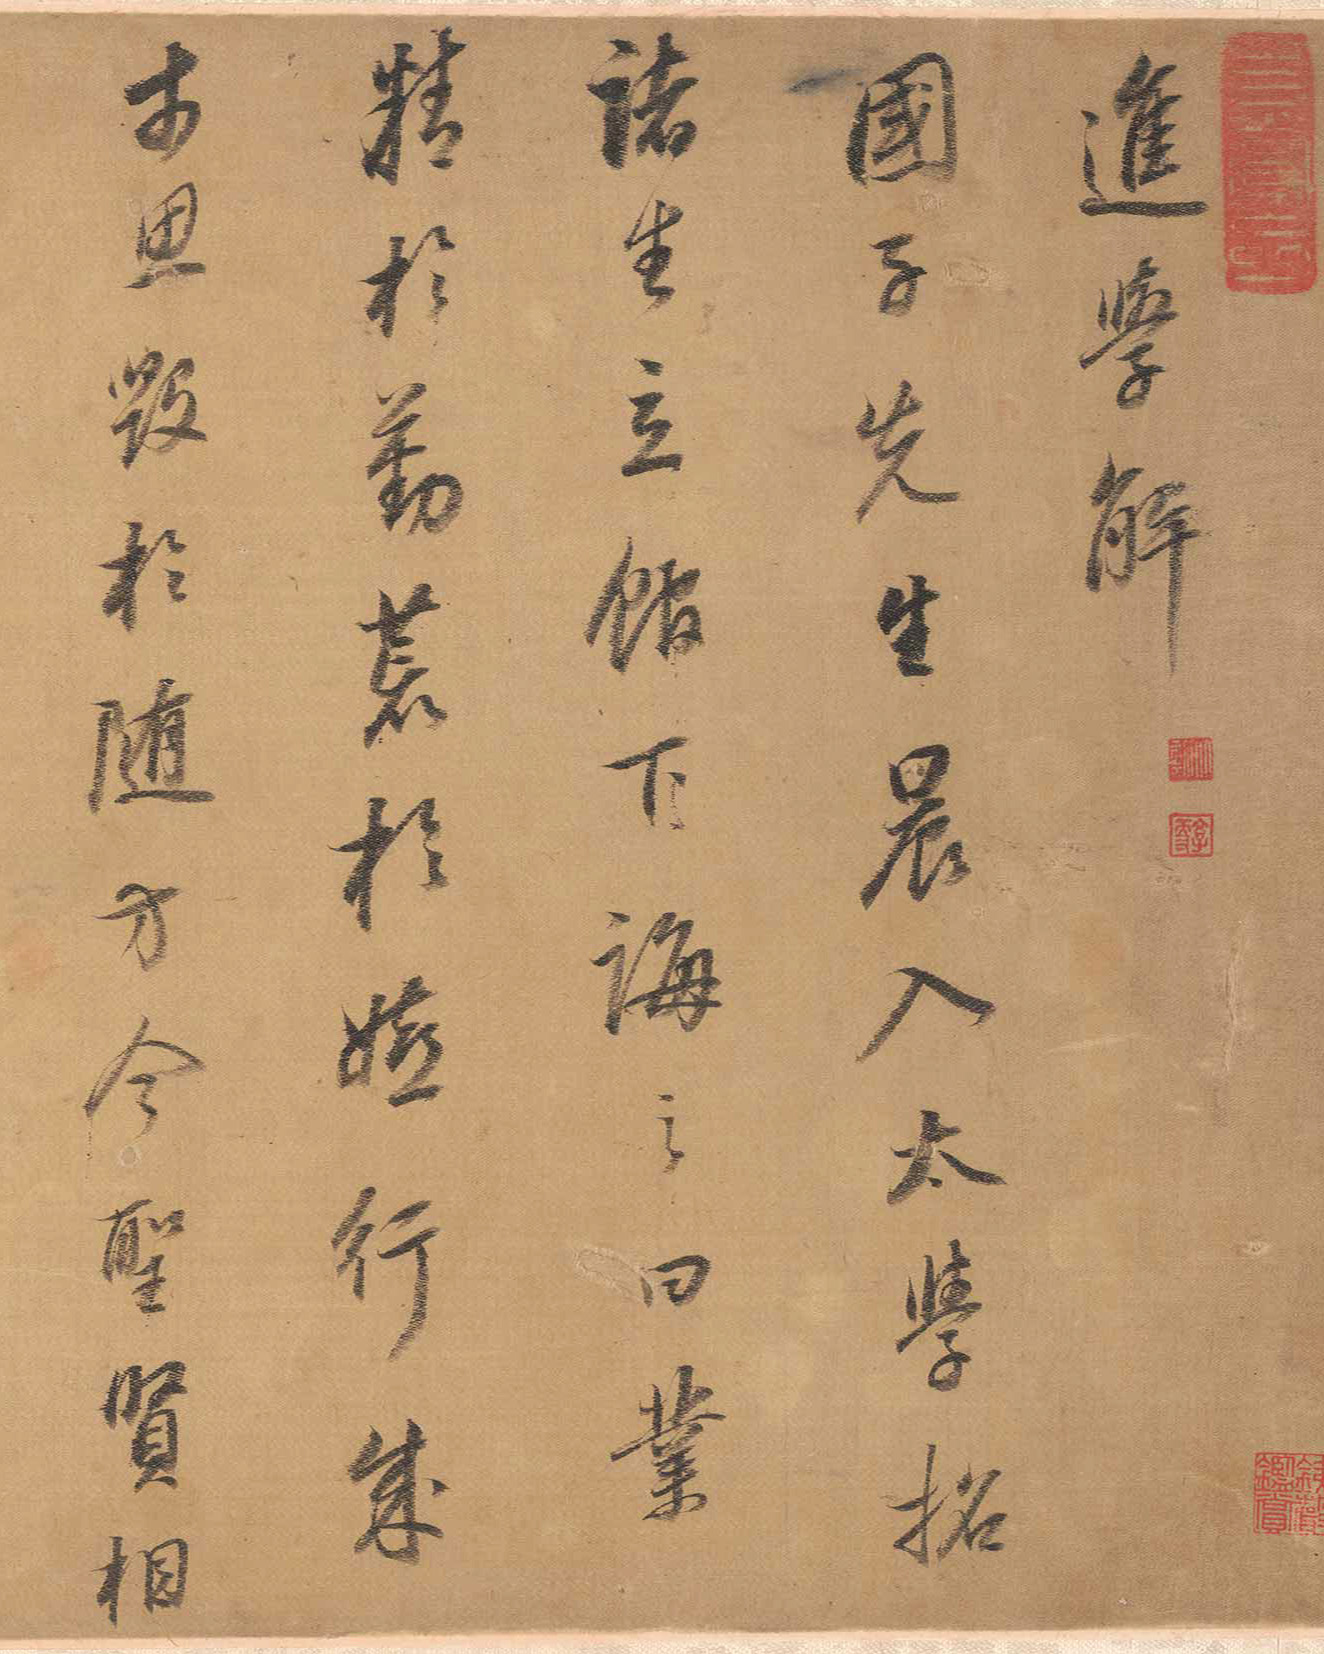 進學解
國子先生晨入太學招
諸生立館下誨之曰業
精於勤荒於嬉行成
於思毀於随方今聖賢相